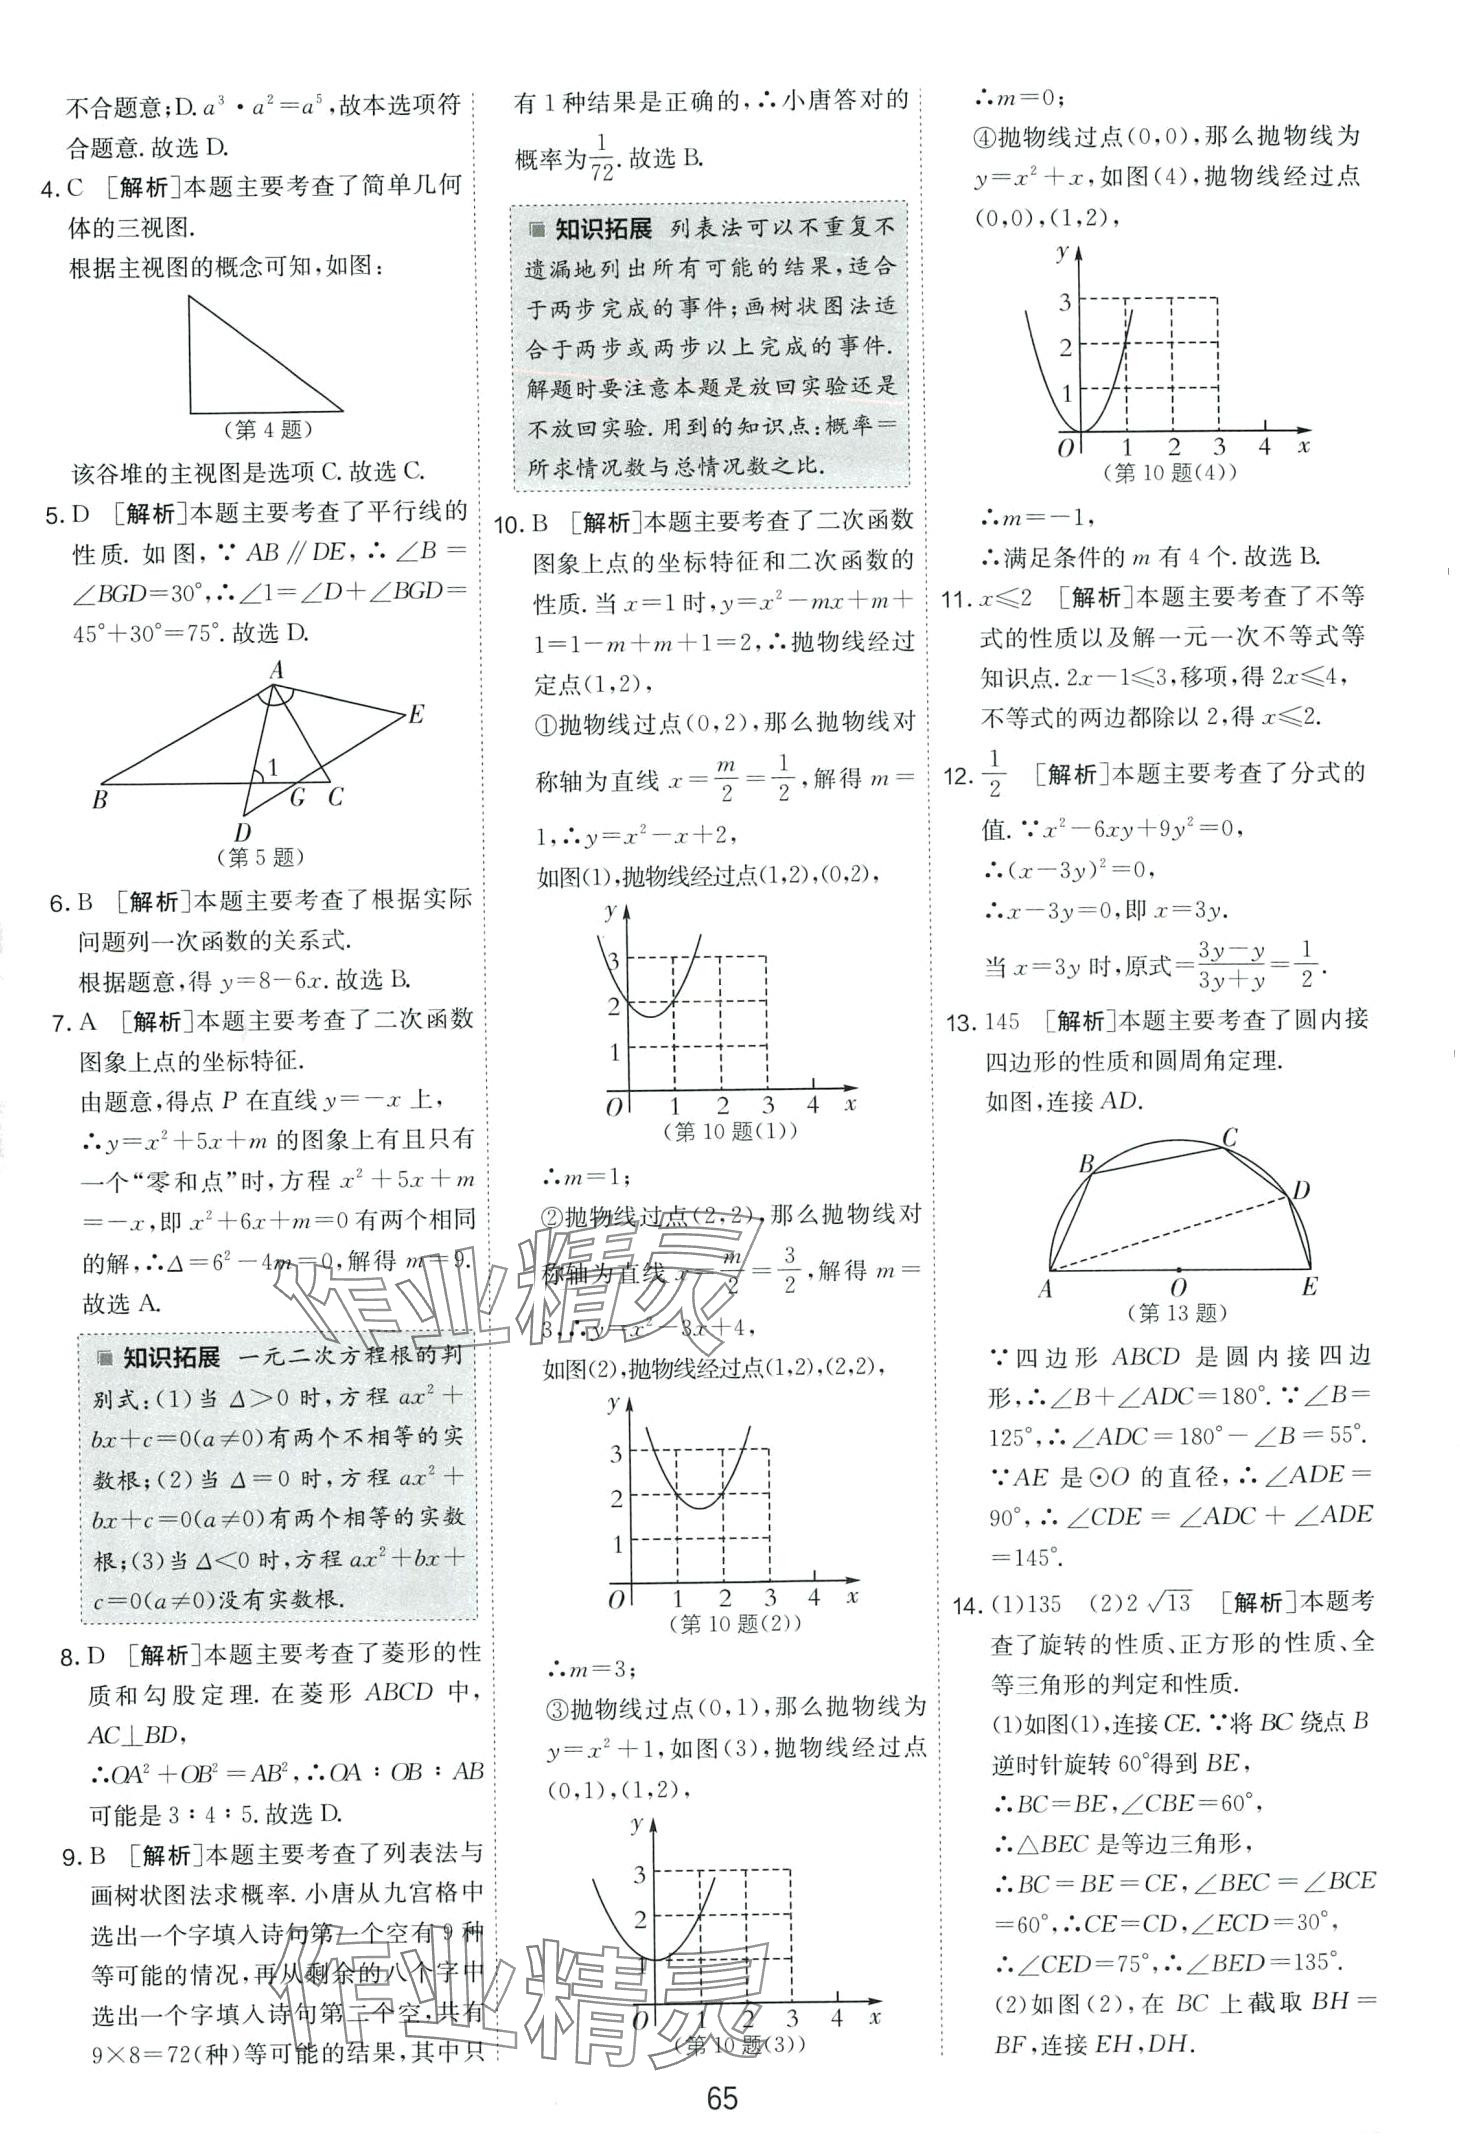 不合题意;D. a³·a²=a⁵,故本选项符
合题意. 故选 D.
4. C [解析]本题主要考查了简单几何
体的三视图.
根据主视图的概念可知,如图:
(第 4 题)
该谷堆的主视图是选项 C. 故选 C.
5. D [解析]本题主要考查了平行线的
性质. 如图, ∵ AB∥DE, ∴ ∠B =
∠BGD=30°,∴∠1=∠D+∠BGD=
45°+30°=75°. 故选 D.
A
E
1
B
G
C
D
(第 5 题)
6. B [解析]本题主要考查了根据实际
问题列一次函数的关系式.
根据题意,得 y=8-6x. 故选 B.
7. A [解析]本题主要考查了二次函数
图象上点的坐标特征.
由题意,得点 P 在直线 y=-x 上,
∴y=x²+5x+m 的图象上有且只有
一个“零和点”时,方程 x²+5x+m
=-x,即 x²+6x+m=0 有两个相同
的解,∴Δ=6²-4m=0,解得 m=9.
故选 A.
知识拓展 一元二次方程根的判
别式:(1)当 Δ>0 时,方程 ax²+
bx+c=0(a≠0)有两个不相等的实
数根;(2)当 Δ=0 时,方程 ax²+
bx+c=0(a≠0)有两个相等的实数
根;(3)当 Δ<0 时,方程 ax²+bx+
c=0(a≠0)没有实数根.
8. D [解析]本题主要考查了菱形的性
质和勾股定理. 在菱形 ABCD 中,
AC⊥BD,
∴OA²+OB²=AB²,∴OA∶OB∶AB
可能是 3∶4∶5. 故选 D.
9. B [解析]本题主要考查了列表法与
画树状图法求概率. 小唐从九宫格中
选出一个字填入诗句第一个空有 9 种
等可能的情况,再从剩余的八个字中
选出一个字填入诗句第二个空,共有
9×8=72(种)等可能的结果,其中只
有 1 种结果是正确的,∴小唐答对的
概率为1/72. 故选 B.
知识拓展 列表法可以不重复不
遗漏地列出所有可能的结果,适合
于两步完成的事件;画树状图法适
合于两步或两步以上完成的事件.
解题时要注意本题是放回实验还是
不放回实验. 用到的知识点:概率=
所求情况数与总情况数之比.
10. B [解析]本题主要考查了二次函数
图象上点的坐标特征和二次函数的
性质. 当 x=1 时,y=x²-mx+m+
1=1-m+m+1=2,∴抛物线经过
定点(1,2),
①抛物线过点(0,2),那么抛物线对
称轴为直线 x=m/2=1/2,解得 m=
1,∴y=x²-x+2,
如图(1),抛物线经过点(1,2),(0,2),
y
3
2
1
O 1 2 3 4 x
(第 10 题(1))
∴m=1;
②抛物线过点(2,2),那么抛物线对
称轴为直线 x=m/2=3/2,解得 m=
3,∴y=x²-3x+4,
如图(2),抛物线经过点(1,2),(2,2),
y
3
2
1
O 1 2 3 4 x
(第 10 题(2))
∴m=3;
③抛物线过点(0,1),那么抛物线为
y=x²+1,如图(3),抛物线经过点
(0,1),(1,2),
y
3
2
1
O 1 2 3 4 x
(第 10 题(3))
∴m=0;
④抛物线过点(0,0),那么抛物线为
y=x²+x,如图(4),抛物线经过点
(0,0),(1,2),
y
3
2
1
O 1 2 3 4 x
(第 10 题(4))
∴m=-1,
∴满足条件的 m 有 4 个. 故选 B.
11. x≤2 [解析]本题主要考查了不等
式的性质以及解一元一次不等式等
知识点. 2x-1≤3,移项,得 2x≤4,
不等式的两边都除以 2,得 x≤2.
12. 1/2 [解析]本题主要考查了分式的
值. ∵x²-6xy+9y²=0,
∴(x-3y)²=0,
∴x-3y=0,即 x=3y.
当 x=3y 时,原式=(3y-y)/(3y+y)=1/2.
13. 145 [解析]本题主要考查了圆内接
四边形的性质和圆周角定理.
如图,连接 AD.
C
B
D
A O E
(第 13 题)
∵四边形 ABCD 是圆内接四边
形,∴∠B+∠ADC=180°. ∵∠B=
125°,∴∠ADC=180°-∠B=55°.
∵AE 是⊙O 的直径,∴∠ADE=
90°,∴∠CDE=∠ADC+∠ADE
=145°.
14. (1)135 (2)2√13 [解析]本题考
查了旋转的性质、正方形的性质、全
等三角形的判定和性质.
(1)如图(1),连接 CE. ∵将 BC 绕点 B
逆时针旋转 60°得到 BE,
∴BC=BE,∠CBE=60°,
∴△BEC 是等边三角形,
∴BC=BE=CE,∠BEC=∠BCE
=60°,∴CE=CD,∠ECD=30°,
∴∠CED=75°,∴∠BED=135°.
(2)如图(2),在 BC 上截取 BH=
BF,连接 EH,DH.
作业精灵
作业精灵
65